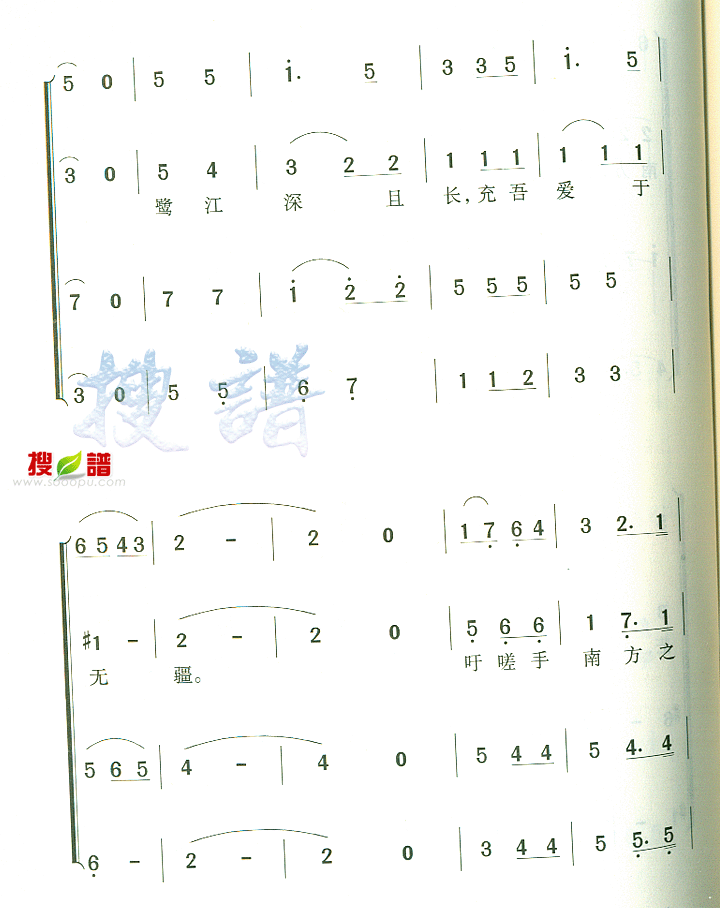 5 0 | 5 5 | i. 5 | 3 3 5 | i. 5 |
3 0 | 5 4 | 3 2 2 | 1 1 1 | 1 1 1 |
鹭 江 深 且 长, 充 吾 爱 于
7 0 | 7 7 | i 2 2 | 5 5 5 | 5 5 |
3 0 | 5 5 | 6 7 | 1 1 2 | 3 3 |
搜 譜
搜 譜
www.sooopu.com
6 5 4 3 | 2 - | 2 0 | 1 7 6 4 | 3 2. 1 |
#1 - | 2 - | 2 0 | 5 6 6 | 1 7. 1 |
无 疆。 吁 嗟 手 南 方 之
5 6 5 | 4 - | 4 0 | 5 4 4 | 5 4. 4 |
6 - | 2 - | 2 0 | 3 4 4 | 5 5. 5 |